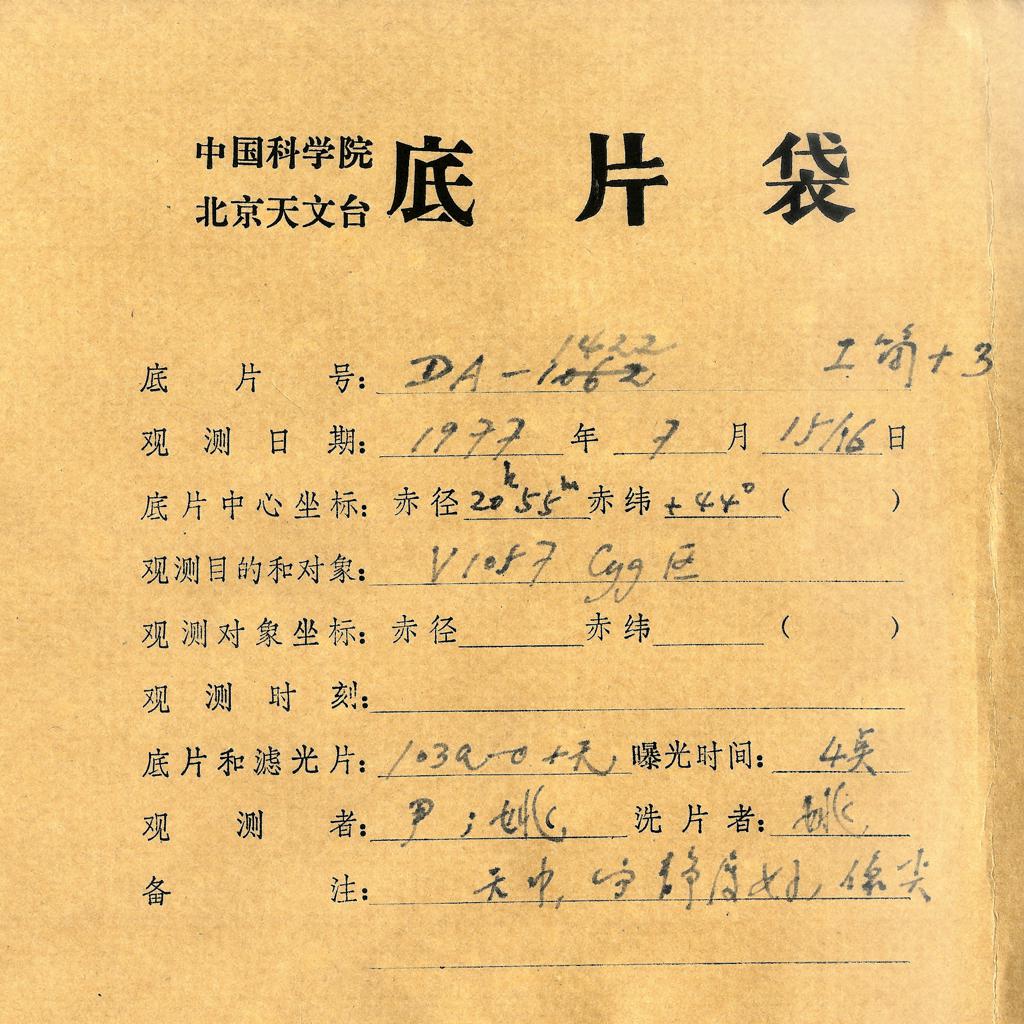 中国科学院
北京天文台
底片袋
1422
底片号: DA-1062 工 +3
观测日期: 1977年7月15/16日
底片中心坐标: 赤径20h55m赤纬+44°( )
观测目的和对象: V1057 Cyg 区
观测对象坐标: 赤径 赤纬 ( )
观测时刻:
底片和滤光片: 103a-O+无 曝光时间: 4
观测者: 尹;姚 洗片者: 姚
备注: 宁静度好, 像尖